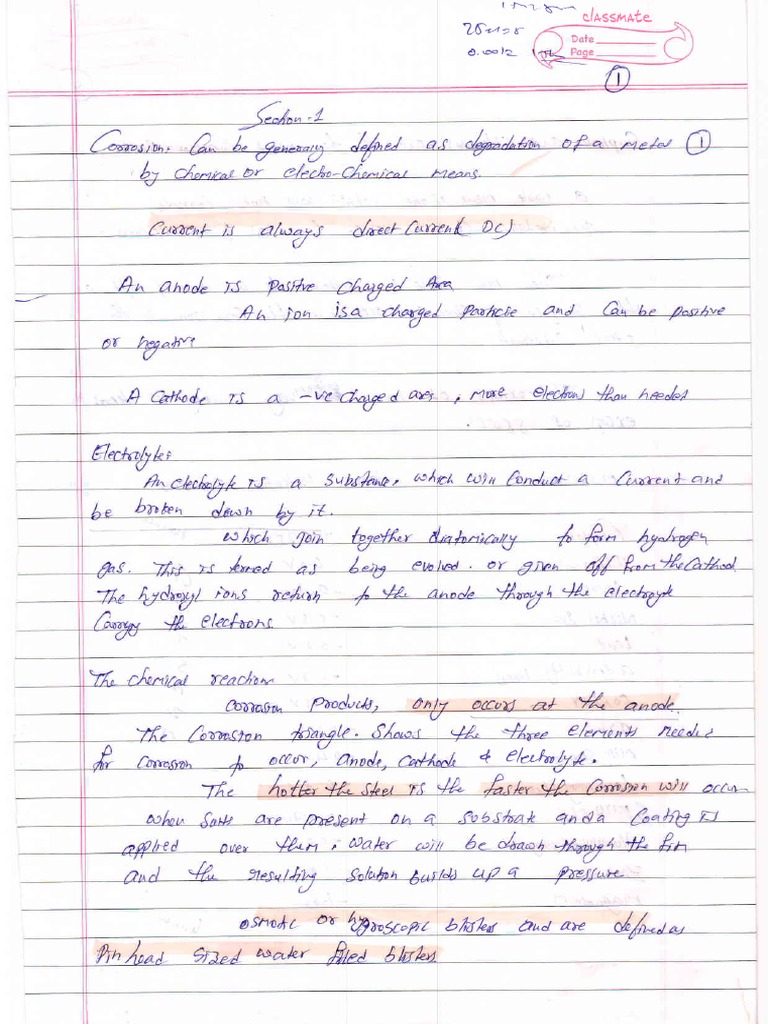 classmate
Date
Page
0.0012
1
Section-1
Corrosion. Can be generaly defined as degradation of a metal 1
by chemical or electro-Chemical means.
Current is always direct Current( DC)
An anode is positive charged Area
An ion is a charged particle and Can be positive
or negative
A Cathode is a -ve charged area, more electrons than needed
Electrolyte:
An electrolyte is a substance, which will Conduct a Current and
be broken down by it.
which join together diatomically to form hydrogen
gas. This is termed as being evolved. or given off from the Cathod.
The hydroxyl ions return to the anode through the electrolyte
Carryng the electrons.
The chemical reaction
Corrosion products, only occurs at the anode.
The Corrosion triangle. Shows the three elements needed
for Corrosion to occur, anode, Cathode & electrolyte.
The hotter the steel is the faster the Corrosion will occur
when Salts are present on a substrate and a Coating is
applied over them, water will be drawn through the film
and the resulting solution builds up a pressure
osmotic or hygroscopic blisters and are defined as
Pin head Sized water filled blisters